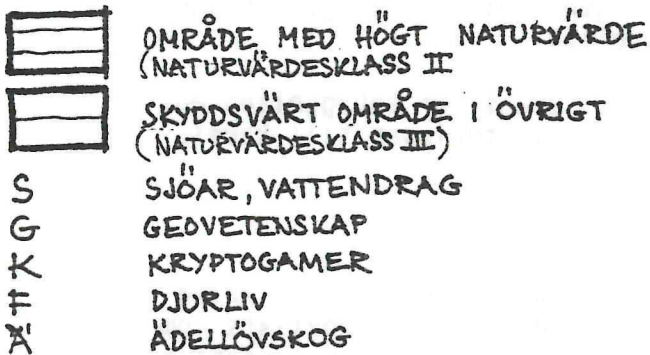 OMRÅDE MED HÖGT NATURVÄRDE
(NATURVÄRDESKLASS II
SKYDDSVÄRT OMRÅDE I ÖVRIGT
(NATURVÄRDESKLASS III)
S SJÖAR, VATTENDRAG
G GEOVETENSKAP
K KRYPTOGAMER
F DJURLIV
Ä ÄDELLÖVSKOG